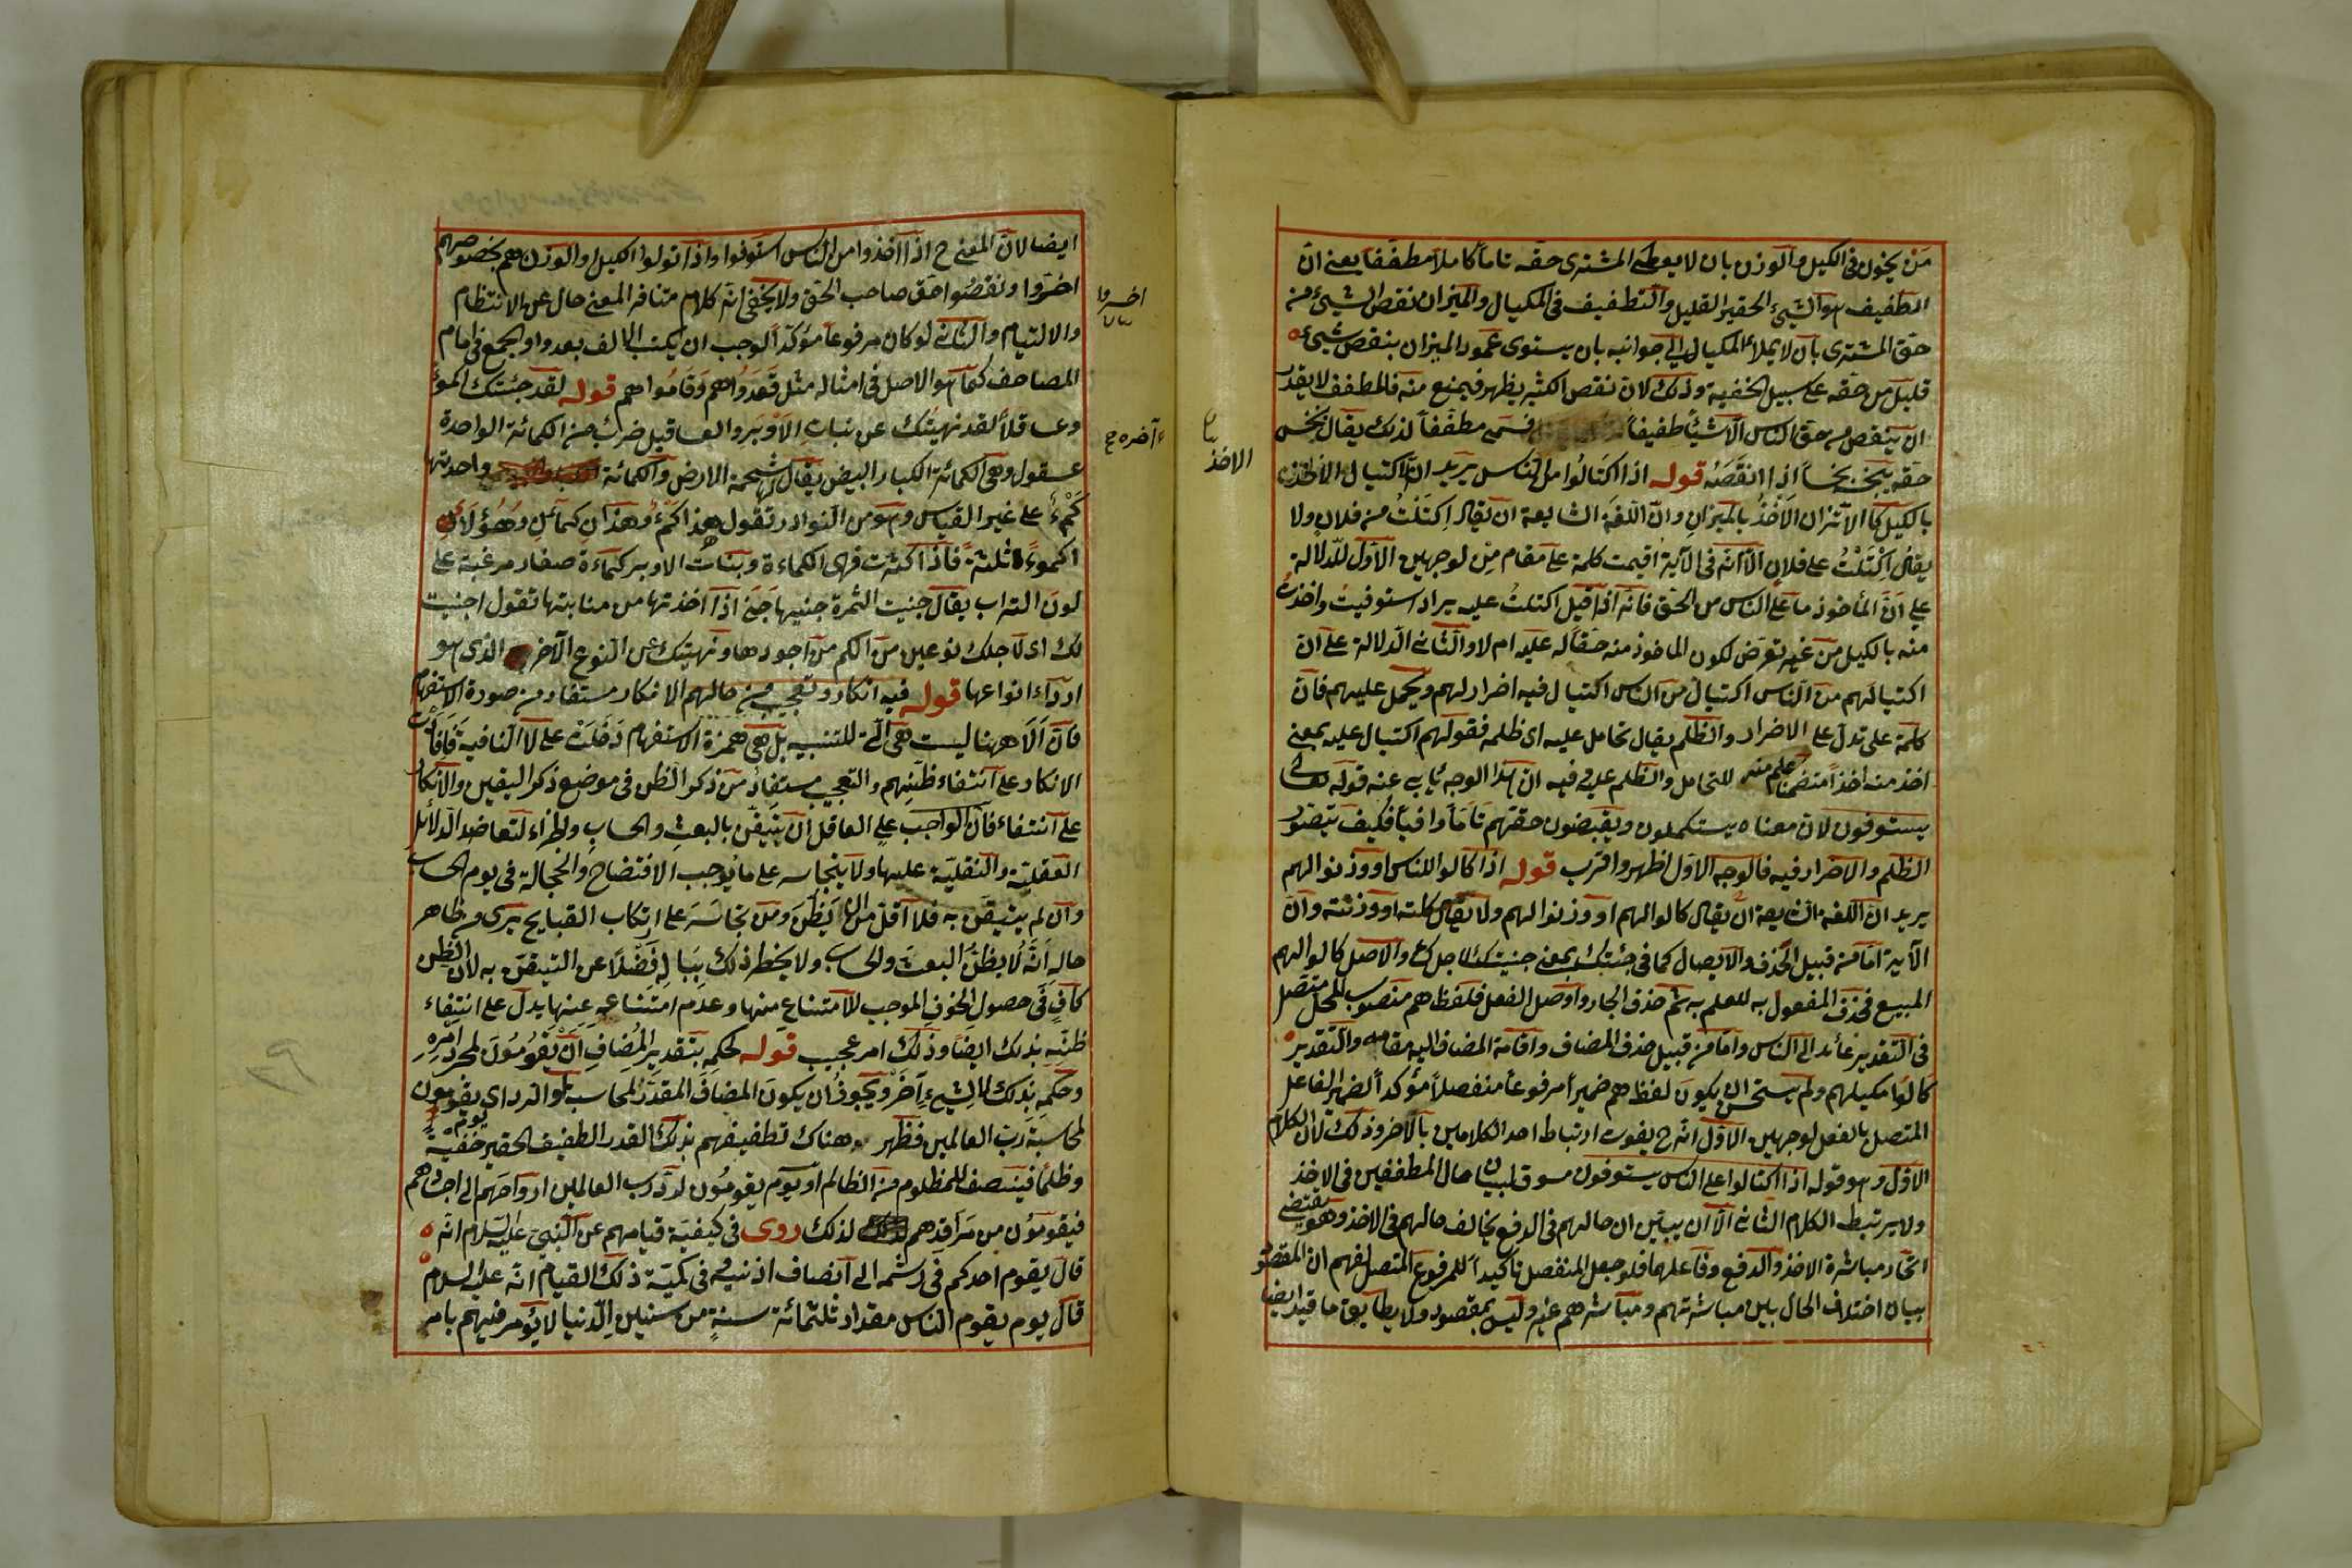 من يخون فى الكيل والوزن بان لا يعطى المشترى حقه تاما كاملا مطففا يعنى ان
الطفيف هو الشيئ الحقير القليل والتطفيف فى المكيال والميزان نقص الشيئ من
حق المشترى بان لا يملأ المكيال الى جوانبه بان يستوى عمود الميزان بنقص شيئ
قليل من حقه على سبيل الخفية وذلك لان نقص الكثير يظهر فيمنع منه فالمطفف لا يقدر
ان ينقص من حق الناس الا شيئا طفيفا فسمى مطففا لذلك يقال بخس
حقه يبخسه بخسا اذا انقصه قوله اذا اكتالوا من الناس يريد ان الاكتيال الاخذ
بالكيل كما الاتزان الاخذ بالميزان وان اللغة الشايعة ان يقال اكتلت من فلان ولا
يقال اكتلت على فلان الا انه فى الآية اقيمت كلمة على مقام من لوجهين الاول للدلالة
على ان المأخوذ ما على الناس من الحق فانه اذا قيل اكتلت عليه يراد استوفيت واخذت
منه بالكيل من غير تعرض لكون الماخوذ منه حقا له عليه ام لا والثانى الدلالة على ان
اكتيالهم من الناس اكتيال فيه اضرار لهم ويحمل عليهم فان
كلمة على تدل على الاضرار والظلم يقال تحامل عليه اى ظلمه فقولهم اكتيال عليه بمعنى
اخذ منه اخذا متضمنا للتحامل والظلم عليه وفيه ان هذا الوجه يابى عنه قوله تعالى
يستوفون لان معناه يستكملون ويقبضون حقهم تاما وافيا فكيف يتصور
الظلم والاضرار فيه فالوجه الاول اظهر واقرب قوله اذا كالوا للناس او وزنوا لهم
يريد ان اللغة الشايعة ان يقال كالوا لهم او وزنوا لهم ولا يقال كلته او وزنته وان
الآية اما من قبيل الحذف والايصال كما فى جنيتك بمعنى جنيت لك لاجلك والاصل كالوا لهم
المبيع فحذف المفعول به للعلم به ثم حذف الجار واوصل الفعل فلفظ هم منصوب المحل متصل
فى التقدير عائد الى الناس واما من قبيل حذف المضاف واقامة المضاف اليه مقامه والتقدير
كالوا مكيلهم ولم يستحسن ان يكون لفظ هم ضميرا مرفوعا منفصلا مؤكدا لضمير الفاعل
المتصل بالفعل لوجهين الاول انه ح يفوت ارتباط احد الكلامين بالآخر وذلك لان الكلام
الاول وهو قوله اذا اكتالوا على الناس يستوفون مسوق لبيان حال المطففين فى الاخذ
ولا يرتبط الكلام الثانى الا ان يبين ان حالهم فى الدفع يخالف حالهم فى الاخذ وهو يقتضى
اتحاد مباشرة الاخذ والدفع وفاعلهما فلو جعل المنفصل تاكيدا للمرفوع المتصل لفهم ان المقصود
بيان اختلاف الحال بين مباشرتهم ومباشرة هم غيره وليس بمقصود ولا يطابق ما قيد ايضا
الاخذ
ايضا لان المعنى ح اذا اخذوا من الناس استوفوا واذا تولوا الكيل او الوزن هم بخصوصهم
اخسروا ونقصوا حق صاحب الحق ولا يخفى انه كلام متنافر المعنى خال عن الانتظام
والالتيام والثانى لو كان مرفوعا مؤكدا لوجب ان يكتب الالف بعد واو الجمع فى امام
المصاحف كما هو الاصل فى امثاله مثل قعدوا هم وقاموا هم قوله لقد جنيتك اكموءا
وعساقلا لقد نهيتك عن نبات الاوبر والعساقيل ضرب من الكمائة الواحدة
عسقول وهى الكمائة الكبار البيض يقال لها شحمة الارض والكمائة واحدتها
كمء على غير القياس وهو من النوادر تقول هذا كمء وهذان كمآن وهؤلاء
اكموء ثلثة فاذا كثرت فهى الكماءة وبنات الاوبر كماءة صغار مزغبة على
لون التراب يقال جنيت الثمرة جنيها جنى اذا اخذتها من منابتها تقول اجنيت
لك اى لاجلك نوعين من الكم من اجودها ونهيتك عن النوع الآخر الذى هو
اردأ انواعها قوله فيه انكار وتعجيب من حالهم الانكار مستفاد من صورة الاستفهام
فان ألا ههنا ليست هى التى للتنبيه بل هى همزة الاستفهام دخلت على لا النافية فافادت
الانكار على انتفاء ظنهم والتعجيب مستفاد من ذكر الظن فى موضع ذكر اليقين والانكار
على انتفاء فان الواجب على العاقل ان يتيقن بالبعث والحساب والجزاء لتعاضد الدلائل
العقلية والنقلية عليها ولا يتجاسر على ما يوجب الافتضاح والخجالة فى يوم الحساب
وان لم يتيقن به فلا اقل من ان يظن ومن يتجاسر على ارتكاب القبايح يرى من ظاهر
حاله انه لا يظن البعث والحساب ولا يخطر ذلك بباله فضلا عن التيقن به لان الظن
كاف فى حصول الخوف الموجب للامتناع منها وعدم امتناعه عنها يدل على انتفاء
ظنه بذلك ايضا وذلك امر عجيب قوله لحكمه بتقدير المضاف ان يقومون لمجرد امره
وحكمه بذلك لا لشيء آخر ويجوز ان يكون المضاف المقدر المحاسبة او الرد اى يقومون
لمحاسبة رب العالمين فظهر هناك تطفيفهم بذلك القدر الطفيف الحقير خفية
وظلما فينتصف للمظلوم من الظالم او يوم يقومون لرد رب العالمين ارواحهم الى اجسادهم
فيقومون من مراقدهم لذلك روى فى كيفية قيامهم عن النبى عليه السلام انه
قال يقوم احدكم فى رشحه الى انصاف اذنيه وفى كمية ذلك القيام انه عليه السلام
قال يوم يقوم الناس مقدار ثلثمائة سنة من سنين الدنيا لا يؤمر فيهم بامر
اخسروا